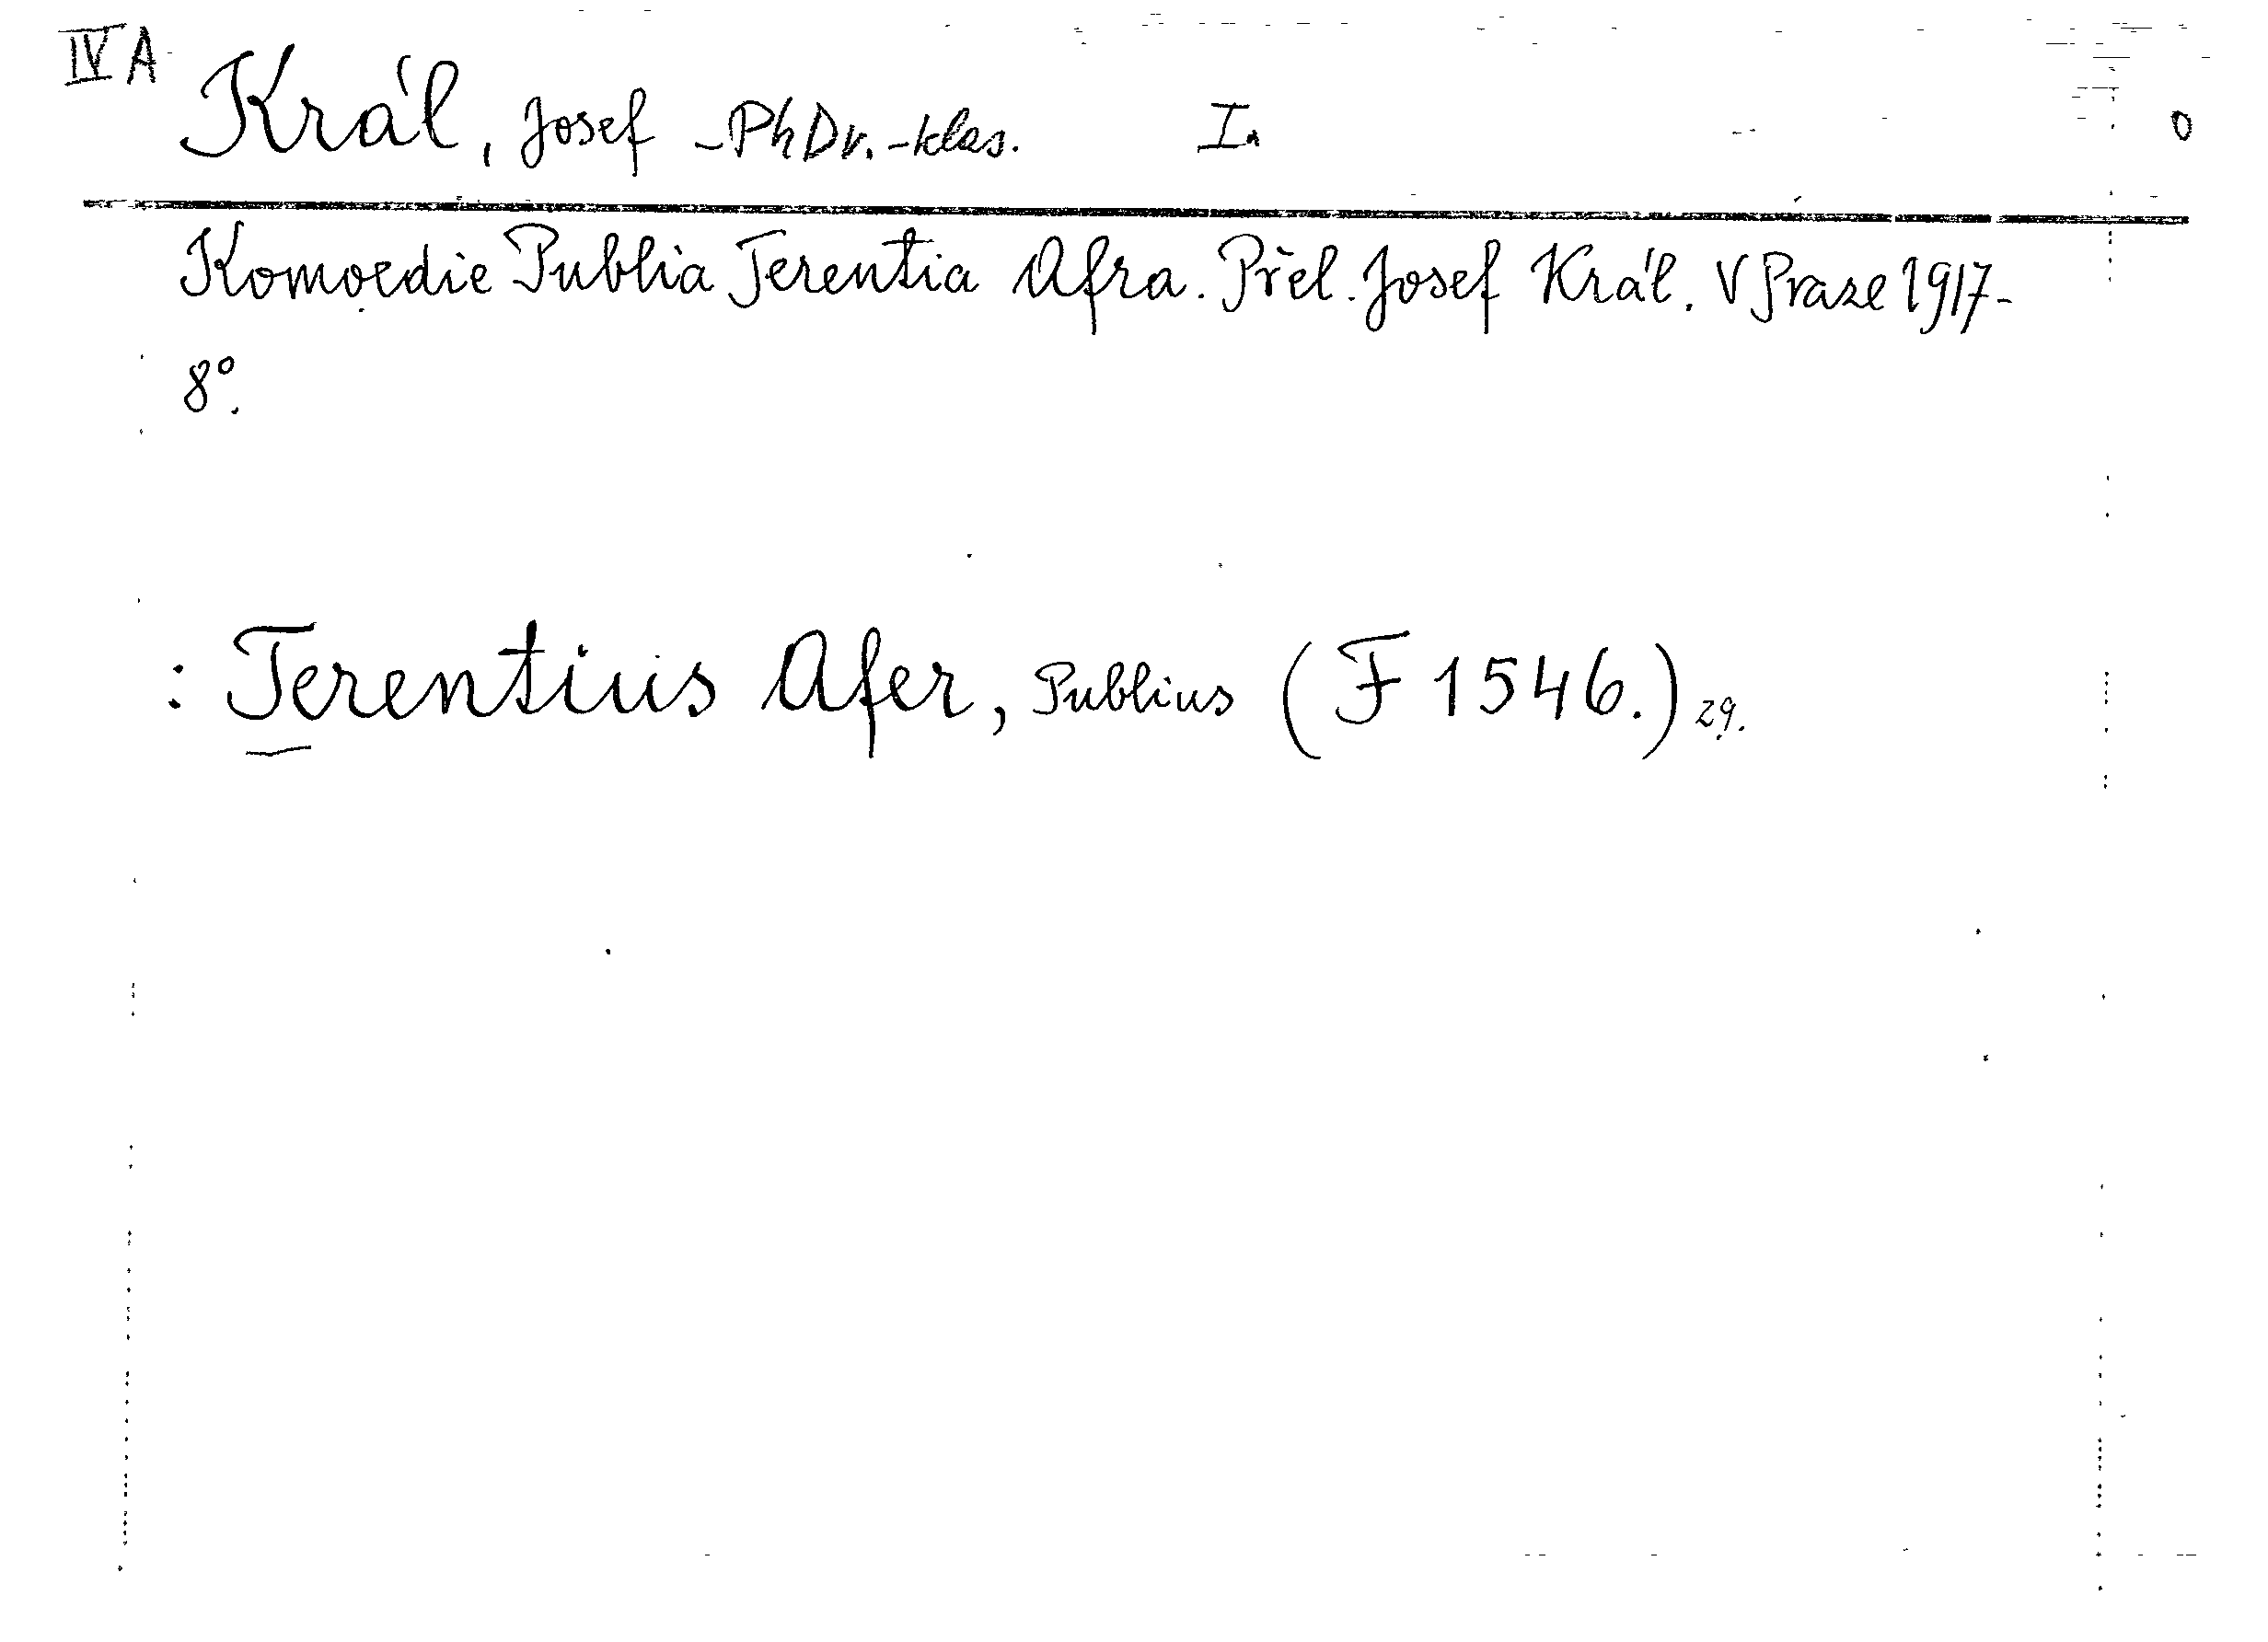 IV A Král, Josef - PhDr. - klas. I. 0
Komoedie Publia Terentia Afra. Přel. Josef Král. V Praze 1917-
8°.
: Terentius Afer, Publius (F 1546.) 29.